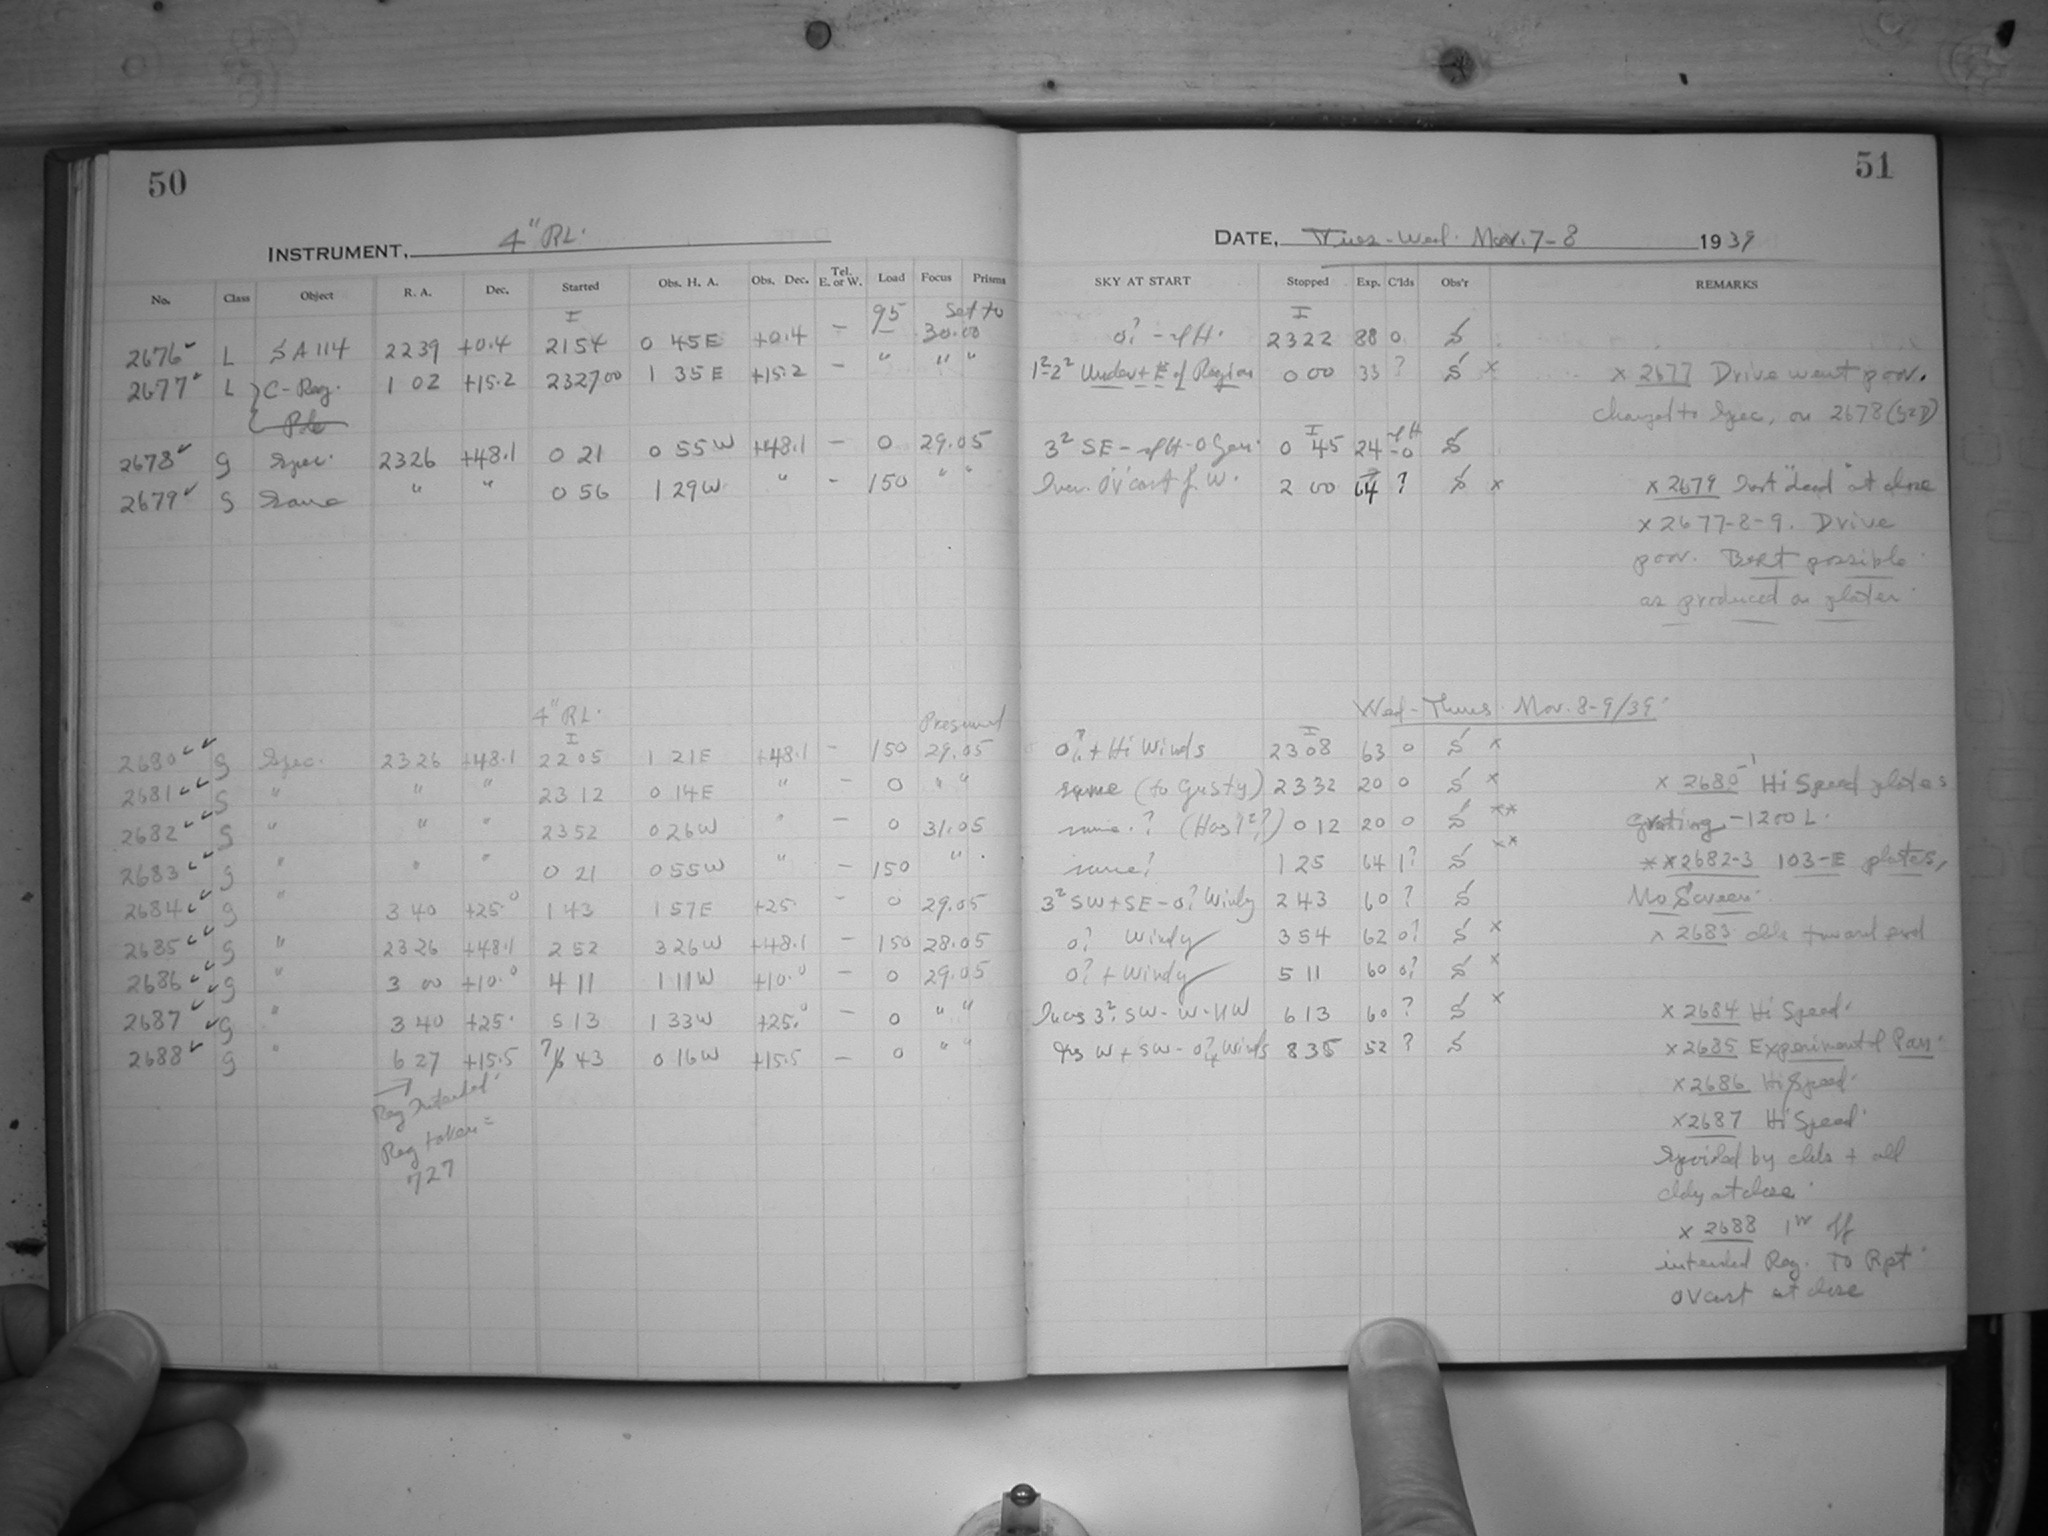 50
INSTRUMENT, 4" RL.
No. Class Object R. A. Dec. Started Obs. H. A. Obs. Dec. Tel. E. or W. Load Focus Prisms
I 95 Set to
2676 L SA 114 2239 +0.4 2154 0 45E +0.4 - 30.00
2677 L C-Reg. 1 02 +15.2 232700 1 35E +15.2 - " " "
Pole
2678 S Spec. 2326 +48.1 0 21 0 55W +48.1 - 0 29.05
2679 S Same " " 0 56 1 29W " - 150 " "
4" RL. Presumed
I
2680 S Spec. 2326 +48.1 2205 1 21E +48.1 - 150 29.05
2681 S " " " 2312 0 14E " - 0 " "
2682 S " " " 2352 0 26W " - 0 31.05
2683 S " " " 0 21 0 55W " - 150 "
2684 S " 3 40 +25.0 1 43 1 57E +25. - 0 29.05
2685 S " 2326 +48.1 2 52 3 26W +48.1 - 150 28.05
2686 S " 3 00 +10.0 4 11 1 11W +10.0 - 0 29.05
2687 S " 3 40 +25. 5 13 1 33W +25.0 - 0 " "
2688 S " 6 27 +15.5 7 43 0 16W +15.5 - 0 " "
Reg Intended
Reg taken =
727
51
DATE, Tues-Wed. Nov. 7-8 1939
SKY AT START Stopped Exp. C'lds Obs'r REMARKS
I
0? 2322 88 0 S
1²-2² Under + E of Region 0 00 33 ? S x x 2677 Drive went poor.
changed to Spec, on 2678
I
3² SE 0 45 24 S
O'cast f. W. 2 00 64 ? S x x 2679 "dead" at close
x 2677-8-9. Drive
poor. Best possible
as produced on plates.
Wed-Thurs. Nov. 8-9/39
I
0? + Hi Winds 2308 63 0 S x
same (to Gusty) 2332 20 0 S x x 2680-1 Hi Speed plates
same.? 0 12 20 0 S ** Grating -1200 L.
same? 1 25 64 1? S ** **2682-3 103-E plates,
3² SW + SE - 0? Windy 2 43 60 ? S No Screen.
0? Windy 3 54 62 0? S x x 2683 clds toward end
0? + Windy 5 11 60 0? S x
3² SW-W-NW 6 13 60 ? S x x 2684 Hi Speed.
W + SW - 0? + Winds 8 35 52 ? S x 2685 Experimental Pan.
x 2686 Hi Speed.
x 2687 Hi Speed.
Spoiled by clds + all
cldy at close.
x 2688 off
intended Reg. To Rpt
Ovcast at close